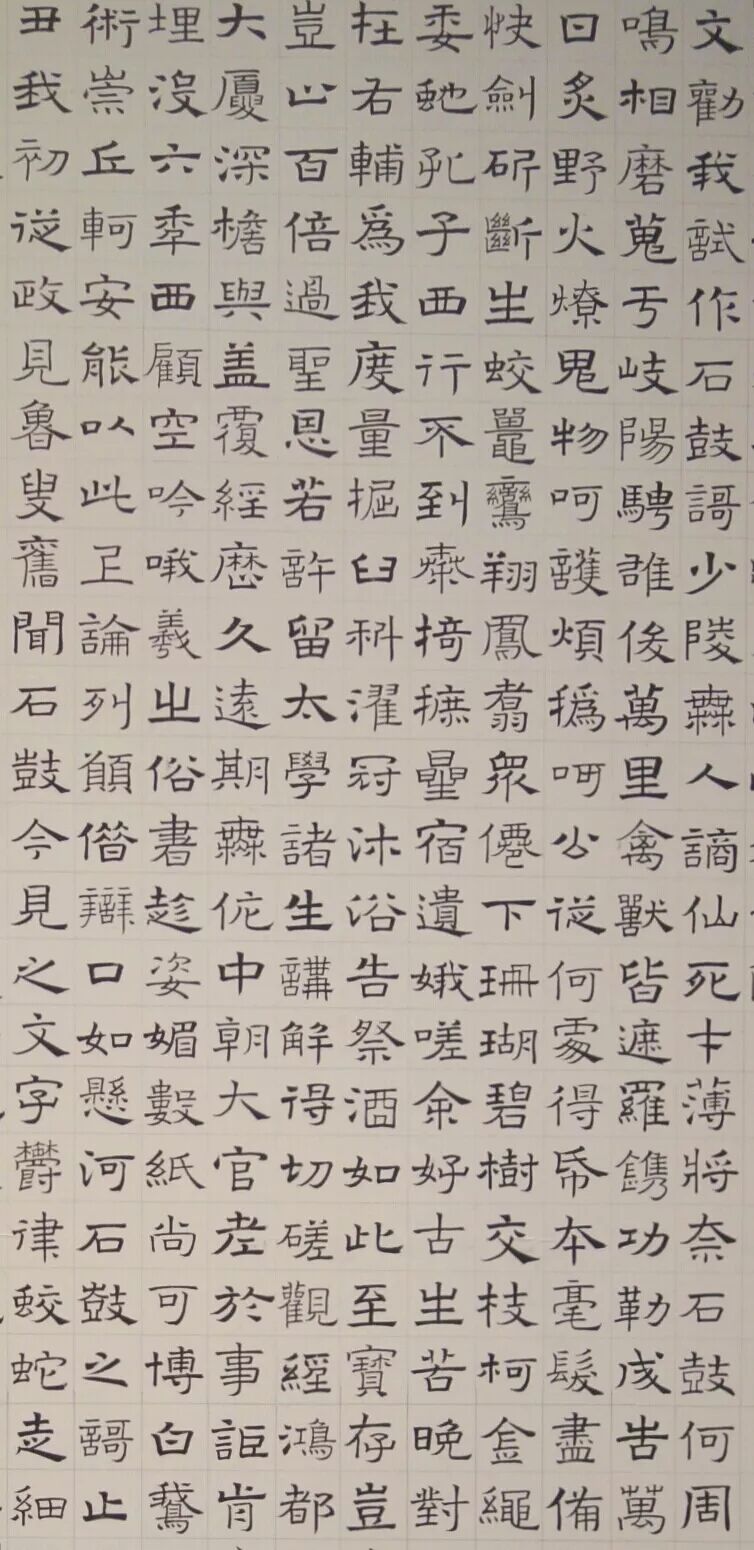 文勸我試作石鼓謌少陵無人謫仙死才薄將奈石鼓何周
鳴相磨蒐于岐陽騁雄俊萬里禽獸皆遮羅鐫功勒成告萬
日炙野火燎鬼物呵護煩撝呵公從何處得帋本毫髮盡備
快劍斫斷生蛟鼉鸞翔鳳翥衆僊下珊瑚碧樹交枝柯金繩
委蛇孔子西行不到秦掎摭星宿遺娥嗟余好古生苦晚對
在右輔爲我度量掘臼科濯冠沐浴告祭酒如此至寶存豈
豈止百倍過聖恩若許留太學諸生講解得切磋觀經鴻都
大廈深檐與盖覆經歷久遠期無佗中朝大官老於事詎肯
埋沒六年西顧空吟哦羲之俗書趁姿媚數紙尚可博白鵝
術崇丘軻安能以此正論列願借辯口如懸河石鼓之謌止
丑我初從政見魯叟舊聞石鼓今見之文字鬱律蛟蛇走細